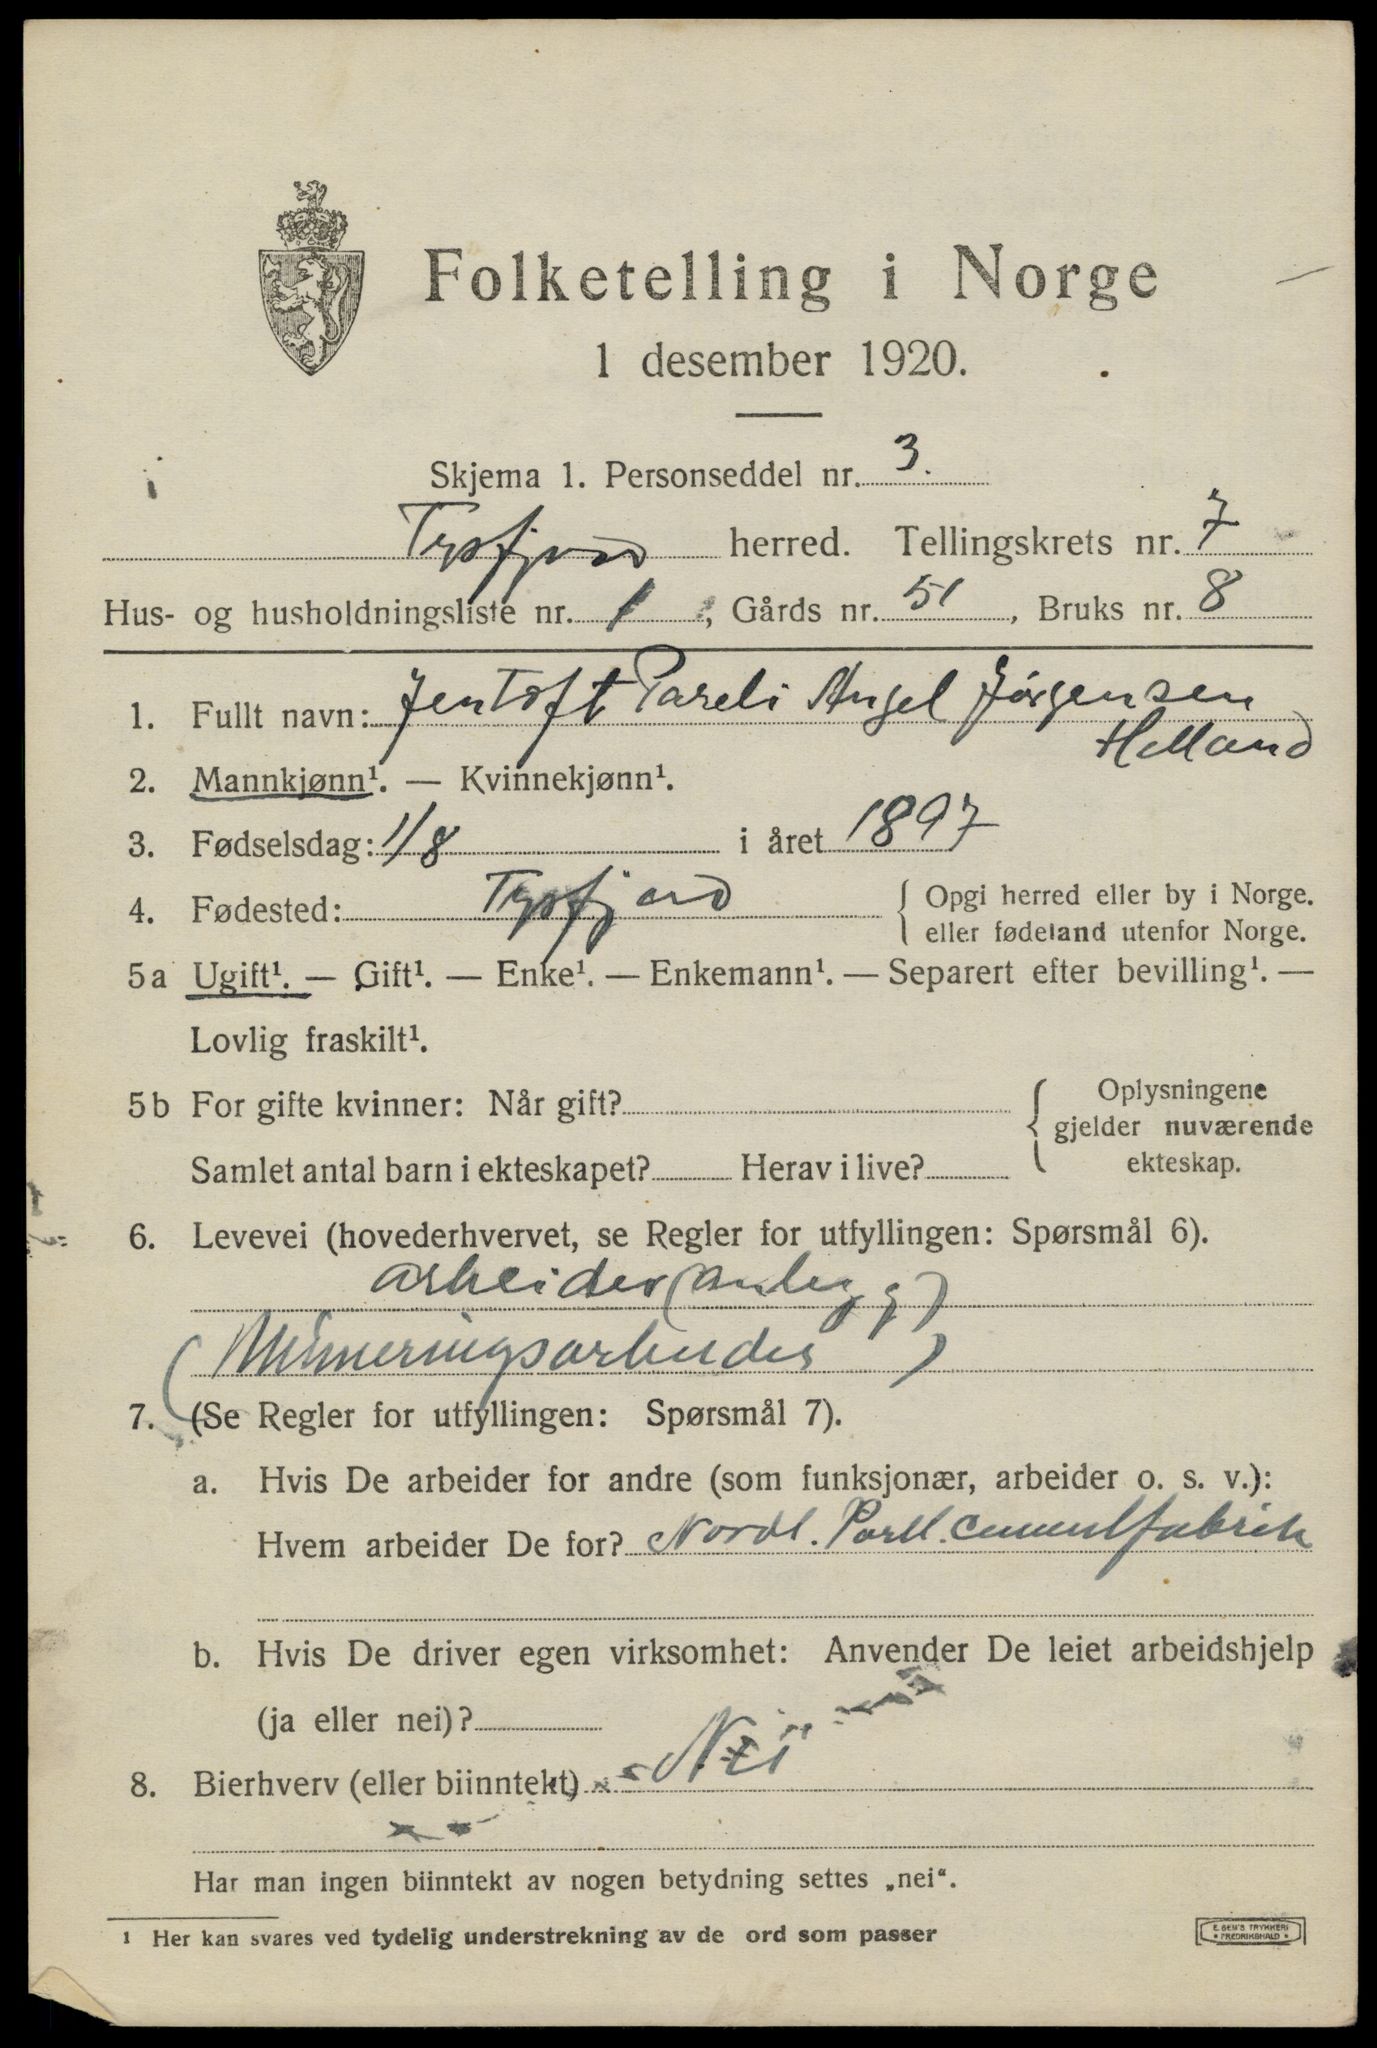 Folketelling i Norge
1 desember 1920.
Skjema 1. Personseddel nr. 3.
Tysfjord herred. Tellingskrets nr. 7
Hus- og husholdningsliste nr. 1, Gårds nr. 51, Bruks nr. 8
1. Fullt navn: Jentoft Pareli Angel Jørgensen
Helland
2. Mannkjønn¹. — Kvinnekjønn¹.
3. Fødselsdag: 1/8 i året 1897
4. Fødested: Tysfjord { Opgi herred eller by i Norge.
eller fødeland utenfor Norge.
5a Ugift¹. — Gift¹. — Enke¹. — Enkemann¹. — Separert efter bevilling¹. —
Lovlig fraskilt¹.
5b For gifte kvinner: Når gift? { Oplysningene
gjelder nuværende
ekteskap.
Samlet antal barn i ekteskapet? Herav i live?
6. Levevei (hovederhvervet, se Regler for utfyllingen: Spørsmål 6).
arbeider (anlegg)
(Mineringsarbeider)
7. (Se Regler for utfyllingen: Spørsmål 7).
a. Hvis De arbeider for andre (som funksjonær, arbeider o. s. v.):
Hvem arbeider De for? Nordl. Portl. cementfabrik
b. Hvis De driver egen virksomhet: Anvender De leiet arbeidshjelp
(ja eller nei)?
8. Bierhverv (eller biinntekt) Nei
Har man ingen biinntekt av nogen betydning settes „nei“.
¹ Her kan svares ved tydelig understrekning av de ord som passer
E. SEM'S TRYKKERI
FREDRIKSHALD